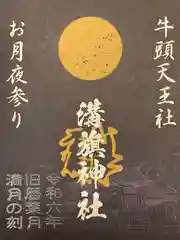 牛頭天王社
溝旗神社
お月夜参り
令和六年
旧暦葉月
満月の刻